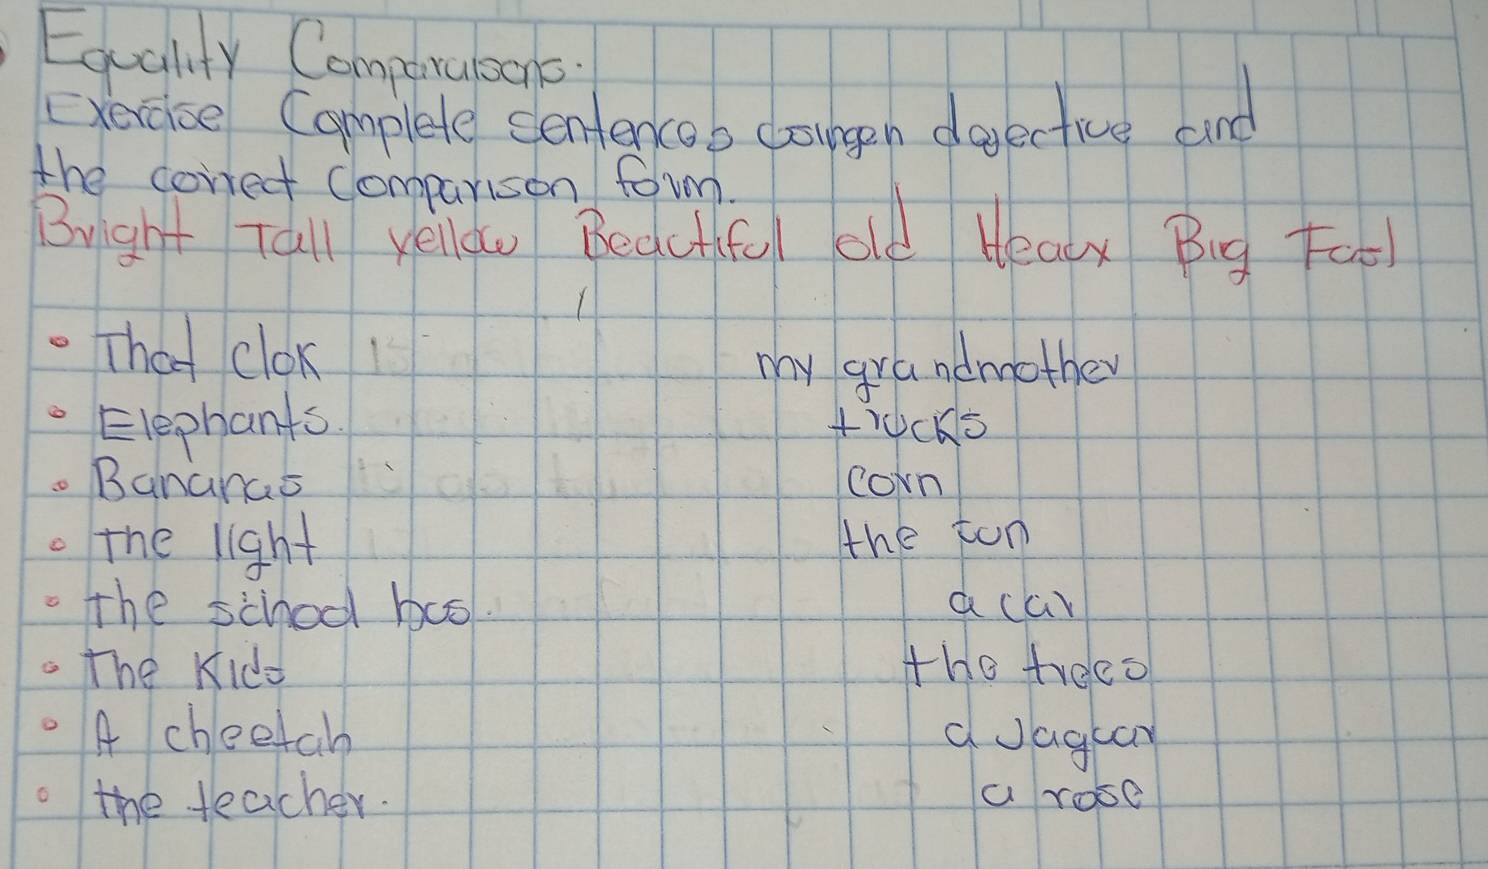 Equality Comparaisons.
Exercise Complete sentences doingen dajective and
the correct comparison form.
Bright Tall yellow Beactiful old Heavy Big Fast
That clok my grandmother
Elephants. trucks
Bananas corn
The light the sun
The school bus. a car
The Kids the trees
A cheetah a Jaguar
the teacher. a rose